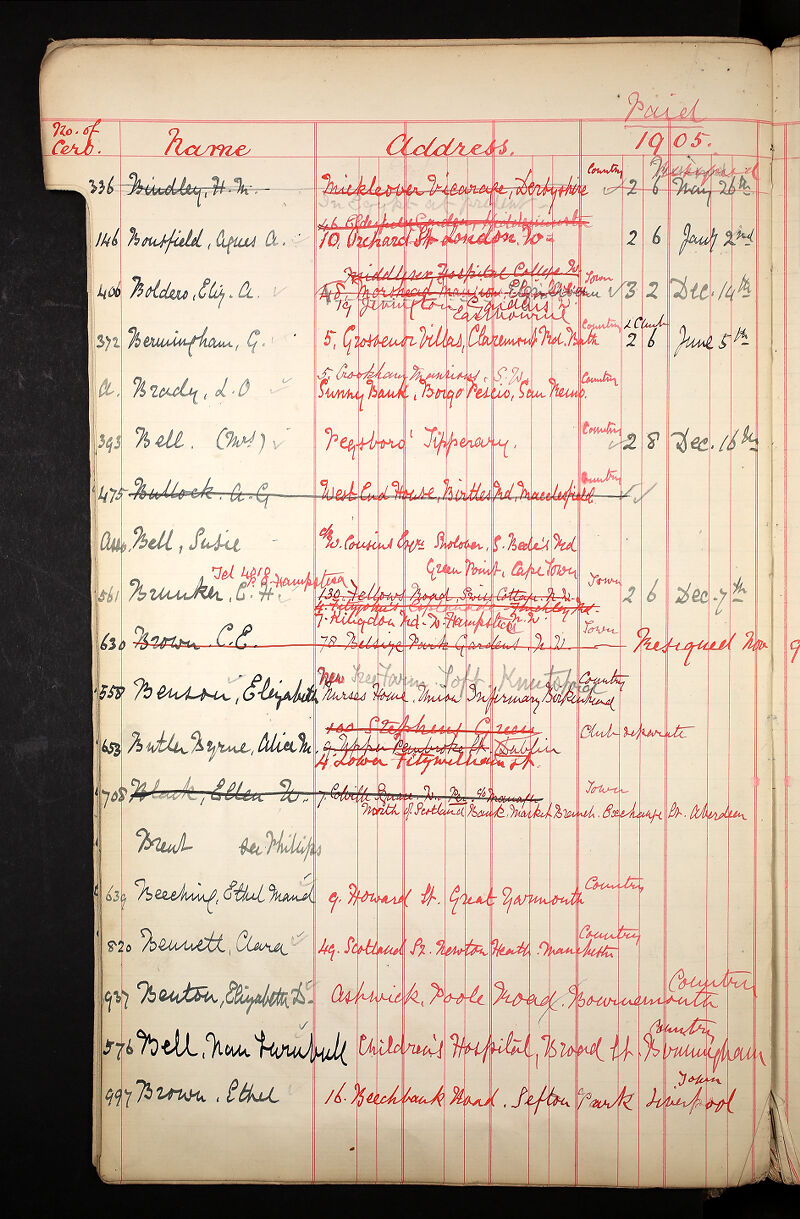 Paid
No. of Cert. Name Address. 1905.
336 Bindley, H. M. Mickleover Vicarage, Derbyshire Country 2 6 May 26th
In Egypt at present
146 Bousfield, Agnes A. 10, Orchard St London. W. 2 6 Jany 2nd
Middlesex Hospital College W. Town
406 Boldero, Eliz. A. 48, Morshead Mansions 3 2 Dec. 14th
19 Jevington Gardens
Eastbourne
Country & Club
372 Bermingham, G. 5, Grosvenor Villas, Claremont Rd. Bath 2 6 June 5th
5. Crookham Mansions, S. W. Country
A. Brady, L. O Sunny Bank, Borgo Pescio, San Remo.
393 Bell. (Mrs) Pegsboro' Tipperary. Country 2 8 Dec. 16th
475 Bullock. A. G West End House, Birtles Rd, Macclesfield Country
Asso. Bell, Susie c/o W. Cousins Esqre S. Bede's Rd
Green Point, Cape Town
Tel 4010 P.O. Hampstead Town
561 Brunker, E. H. 130. Fellows Road, Swiss Cottage. N. W. 2 6 Dec. 7th
4. Fitzjohn's Esplanade. Finchley Rd.
7. Hilgdon Rd. W. Hampstead N. W.
630 Brown. C. E. 78 Belsize Park Gardens. N. W. Town Resigned Nov
New Free Farm Toft. Knutsford Country
558 Benson, Elizabeth Nurses Home, Union Infirmary, Birkenhead
100 Stephens Green Club separate
653 Butler Byrne, Alice M. 9. Upper Pembroke St. Dublin
4 Lower Fitzwilliam St.
708 Black, Ellen W. 7. Colville Square. W. Town
North of Scotland Bank. Market Branch. Exchange St. Aberdeen
Brent see Phillips
639 Beeching, Ethel Maud 9. Howard St. Great Yarmouth Country
820 Bennett, Clara 49. Scotland St. Newton Heath. Manchester Country
937 Benton, Elizabeth D. Ashwick, Poole Road, Bournemouth Country
576 Bell, Nan Turnbull Children's Hospital, Broad St. Birmingham Country
997 Brown. Ethel 16. Beechbank Road. Sefton Park Liverpool Town